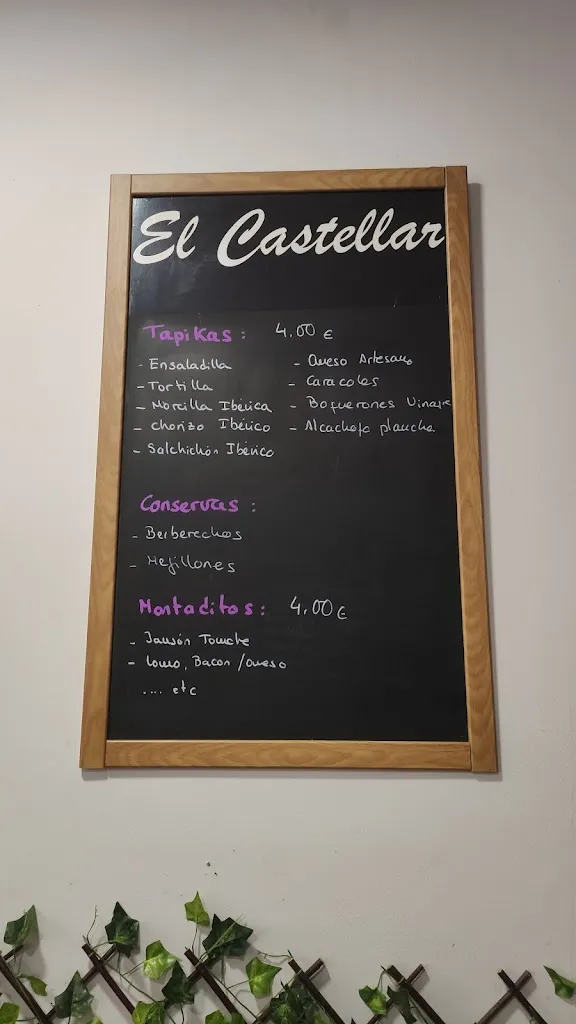 El Castellar
Tapikas: 4.00 €
- Ensaladilla
- Tortilla
- Morcilla Ibérica
- Chorizo Ibérico
- Salchichón Ibérico
- Queso Artesano
- Caracoles
- Boquerones Vinagre
- Alcachofa plancha
Conservas:
- Berberechos
- Mejillones
Montaditos: 4.00 €
- Jamón Tomate
- Lomo, Bacon / Queso
.... etc